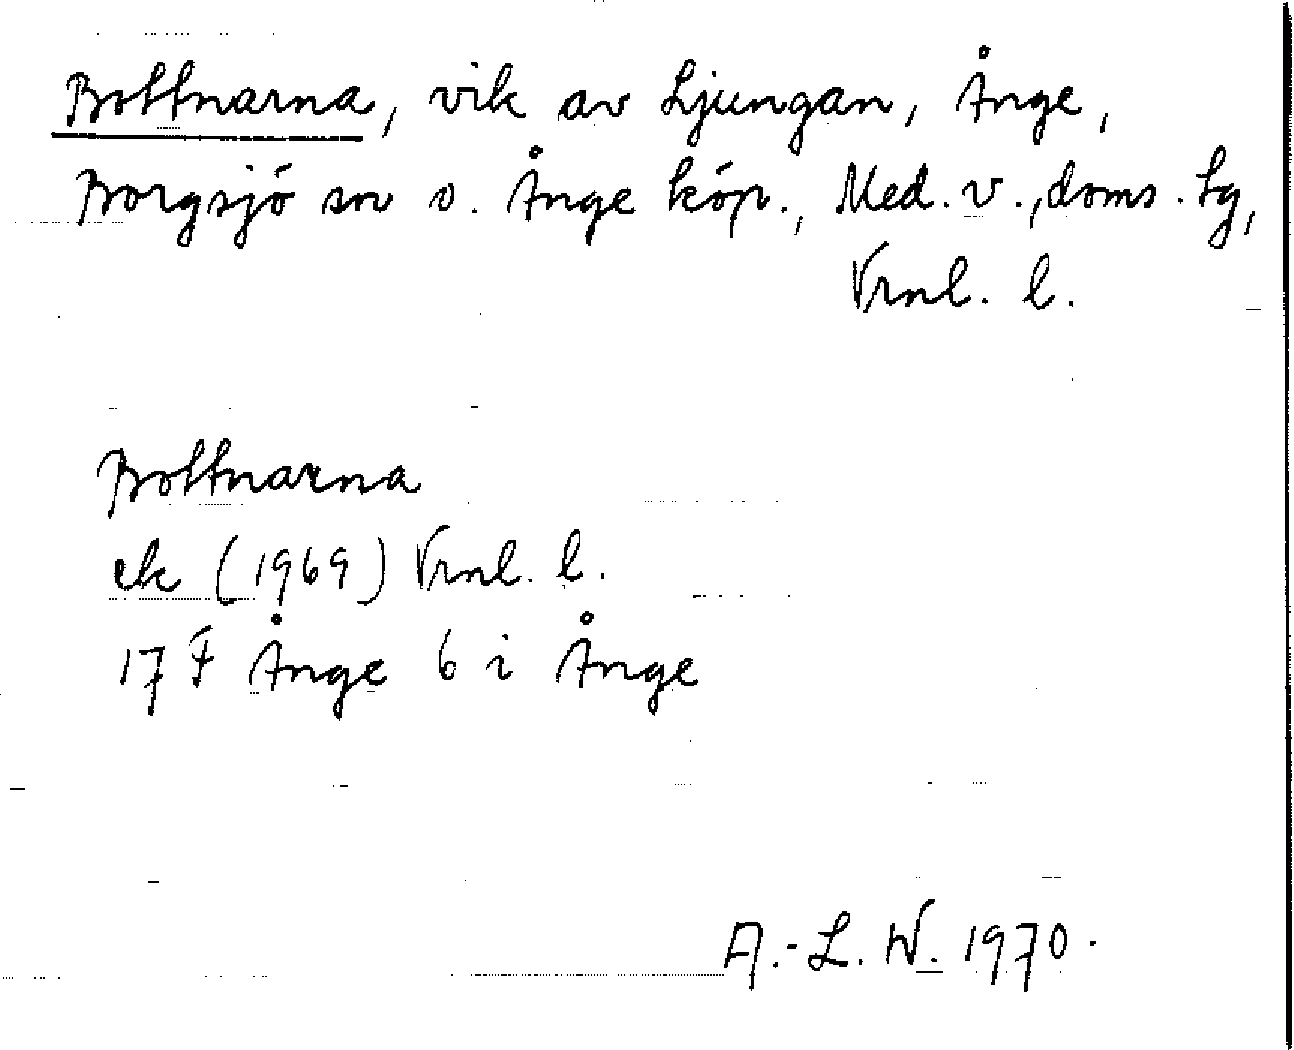 Bottnarna, vik av Ljungan, Ånge,
Borgsjö sn o. Ånge köp., Med. v., doms. tg,
Vrnl. l.
Bottnarna
ek (1969) Vrnl. l.
17 F Ånge 6 i Ånge
A.-L. W. 1970.